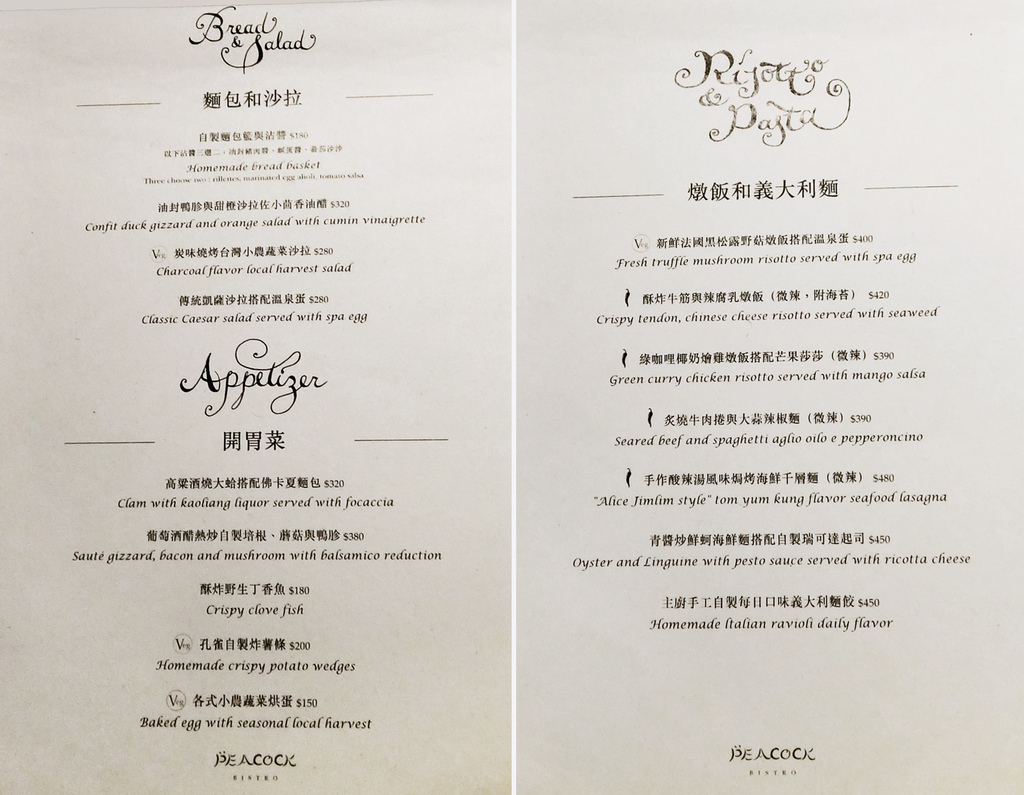 Bread
& Salad
麵包和沙拉
自製麵包籃與沾醬 $180
Homemade bread basket
Three choose two : rillettes, marinated egg alioli, tomato salsa
油封鴨胗與甜橙沙拉佐小茴香油醋 $320
Confit duck gizzard and orange salad with cumin vinaigrette
Veg 炭味燒烤台灣小農蔬菜沙拉 $280
Charcoal flavor local harvest salad
傳統凱薩沙拉搭配溫泉蛋 $280
Classic Caesar salad served with spa egg
Appetizer
開胃菜
高粱酒燒大蛤搭配佛卡夏麵包 $320
Clam with kaoliang liquor served with focaccia
葡萄酒醋熱炒自製培根、蘑菇與鴨胗 $380
Sauté gizzard, bacon and mushroom with balsamico reduction
酥炸野生丁香魚 $180
Crispy clove fish
Veg 孔雀自製炸薯條 $200
Homemade crispy potato wedges
Veg 各式小農蔬菜烘蛋 $150
Baked egg with seasonal local harvest
PEACOCK
BISTRO
Risotto
& Pasta
燉飯和義大利麵
Veg 新鮮法國黑松露野菇燉飯搭配溫泉蛋 $400
Fresh truffle mushroom risotto served with spa egg
酥炸牛筋與辣腐乳燉飯（微辣，附海苔） $420
Crispy tendon, chinese cheese risotto served with seaweed
綠咖哩椰奶燴雞燉飯搭配芒果莎莎（微辣） $390
Green curry chicken risotto served with mango salsa
炙燒牛肉捲與大蒜辣椒麵（微辣） $390
Seared beef and spaghetti aglio oilo e pepperoncino
手作酸辣湯風味焗烤海鮮千層麵（微辣） $480
"Alice Jimlim style" tom yum kung flavor seafood lasagna
青醬炒鮮蚵海鮮麵搭配自製瑞可達起司 $450
Oyster and Linguine with pesto sauce served with ricotta cheese
主廚手工自製每日口味義大利麵餃 $450
Homemade Italian ravioli daily flavor
PEACOCK
BISTRO